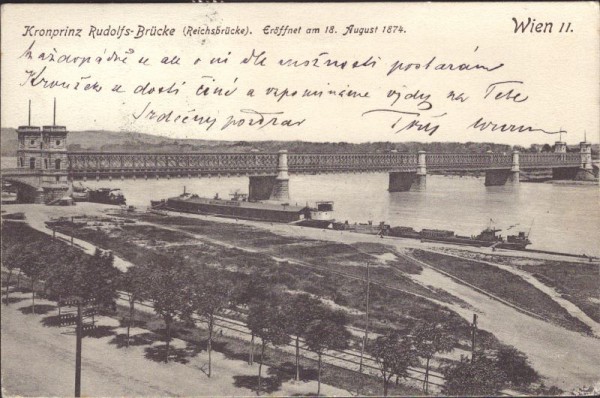 Kronprinz Rudolfs-Brücke (Reichsbrücke). Eröffnet am 18. August 1874.
Wien II.
každopádně u ale o ni dle možnosti postarám
Kroužek a dosti čině a vzpomínáme vždy na Tebe
Srdečný pozdrav